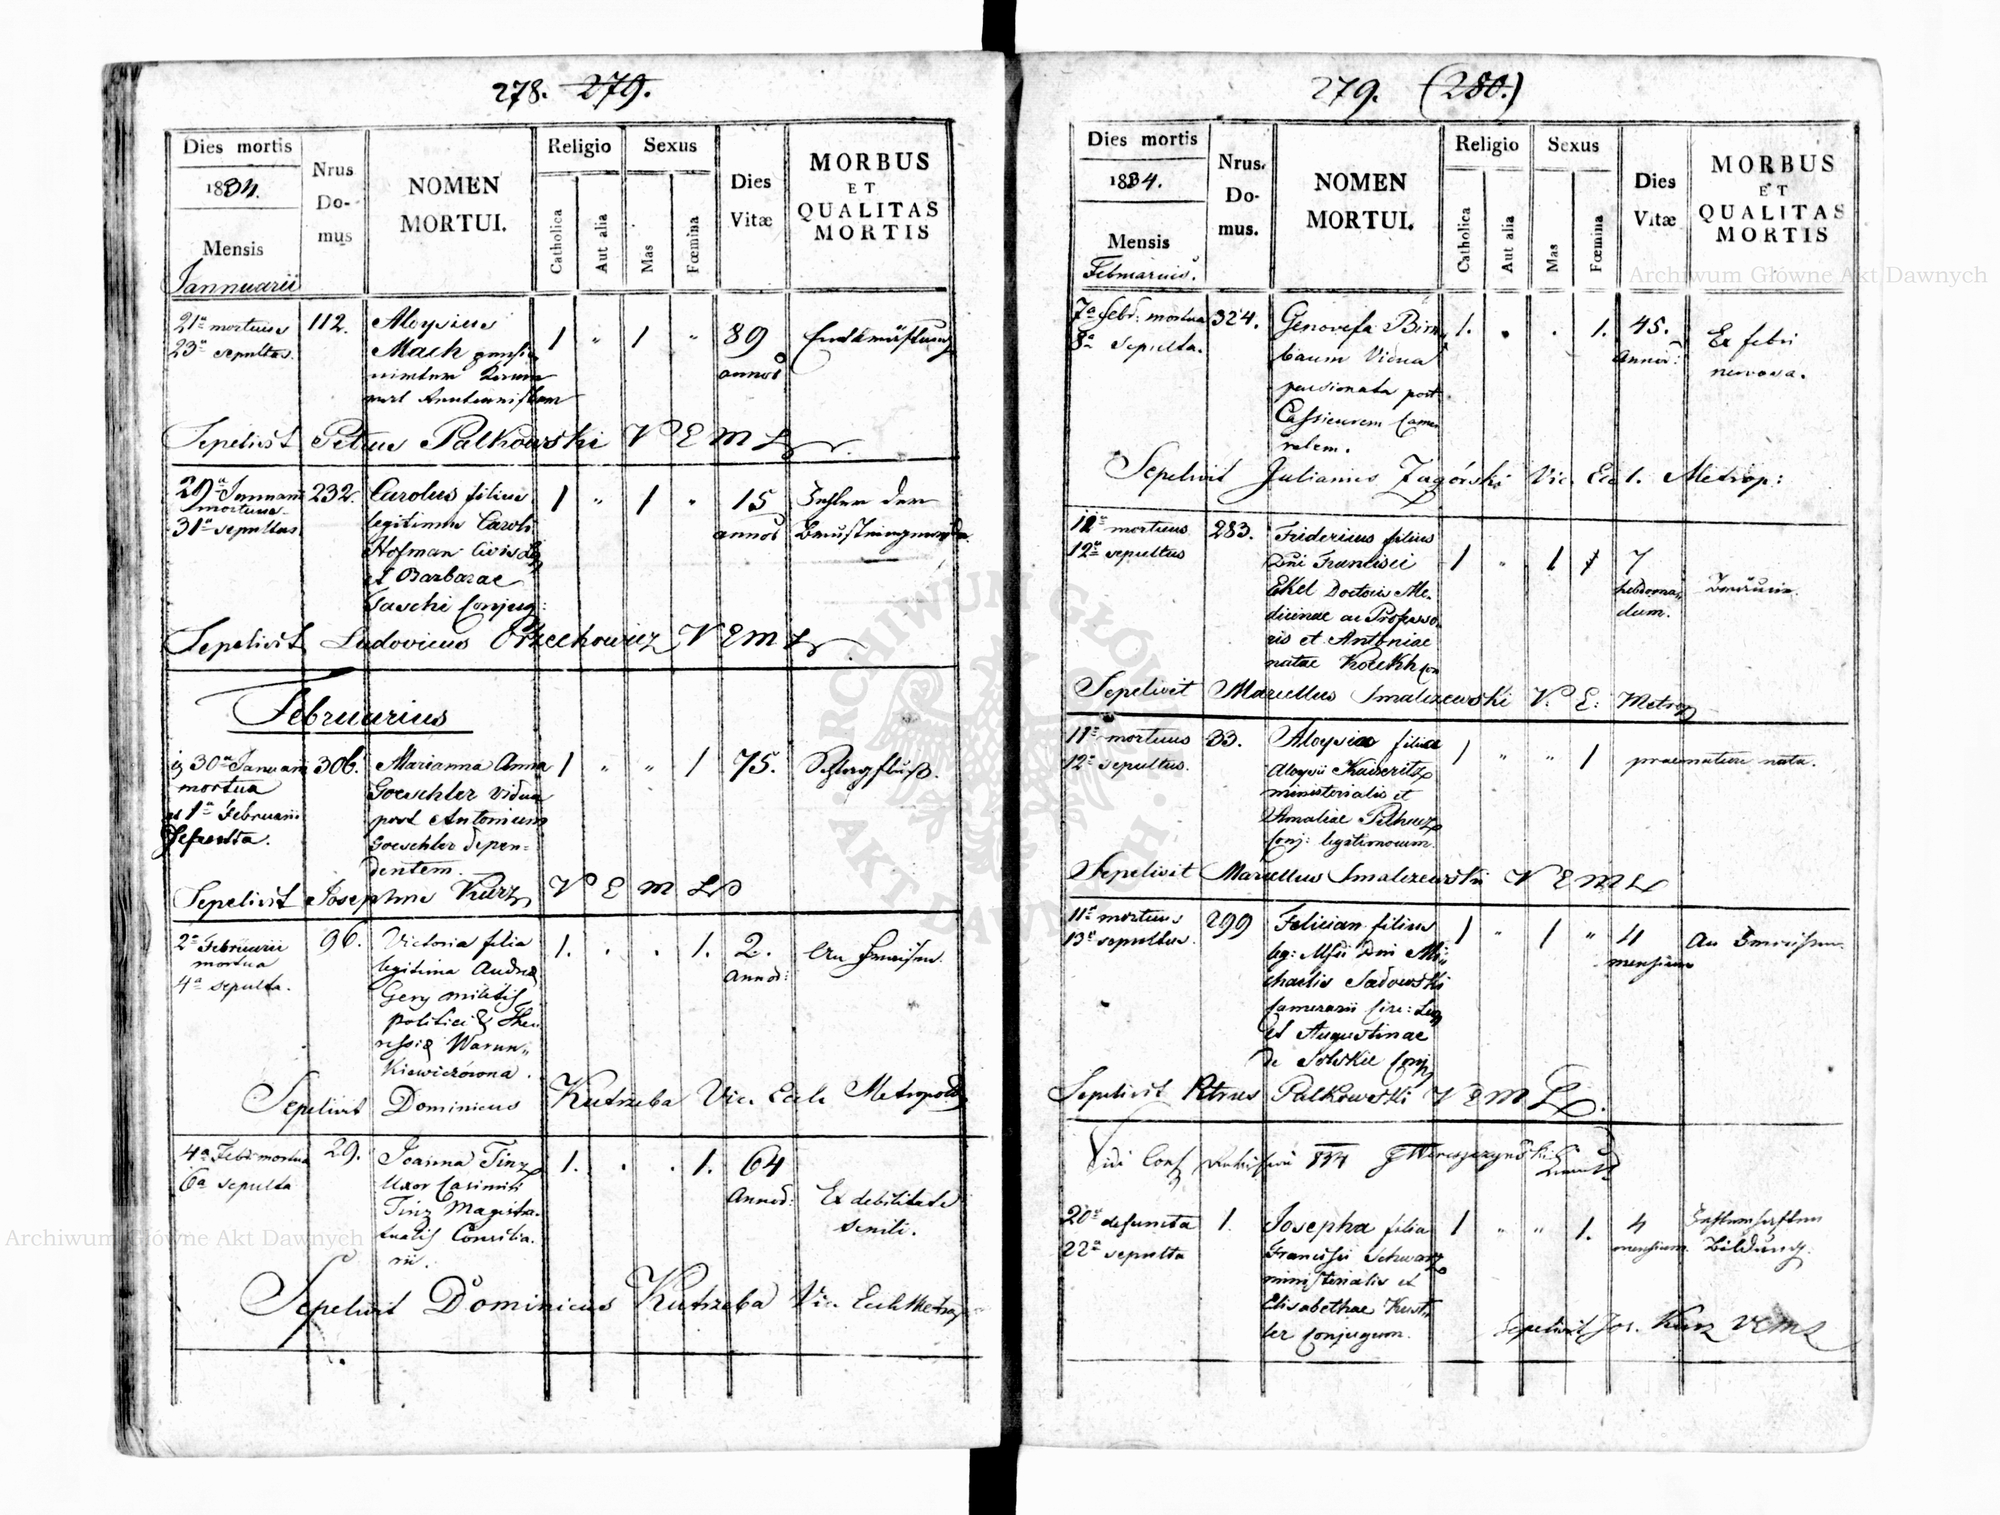 278. 279.
Dies mortis
1834.
Mensis
Jannuarii
Nrus Domus
NOMEN MORTUI.
Religio
Catholica
Aut alia
Sexus
Mas
Fœmina
Dies Vitæ
MORBUS
ET
QUALITAS
MORTIS
21ª mortuus 112. Aloysius 1 " 1 " 89
23ª sepultus. Mack
annos
Sepelivit Petrus Palkowski V E M L
29ª Januarii 232. Carolus filius 1 " 1 " 15 Fehler der
mortuus legitimus Caroli annos
31ª sepultus Hofman civis
et Barbarae
Taschi Conjug:
Sepelivit Ludovicus Orzechowicz V E M L
Februarius
30ª Januarii 306. Marianna Anna 1 " " 1 75. Schlagfluß.
mortua Goeschler vidua
et 1ª Februarii post Antonium
sepulta. Goeschler depen-
dentem.
Sepelivit Josephus Kurz V E M L
2ª Februarii 96. Victoria filia 1. . . 1. 2. An Fraisen
mortua legitima Andreæ Annor:
4ª sepulta. Gery militis
politici & The-
ressiæ Warun-
kiewiczówna.
Sepelivit Dominicus Kutrzeba Vic. Eccle Metropolit
4ª Febr mortua 29. Joanna Tinz 1. . . 1. 64
6ª sepulta Uxor Casimiri Annor: Ex debilitate
Tinz Magistra- senili.
tualis Consilia-
rii.
Sepelivit Dominicus Kutrzeba Vic. Eccl Metrop
279. (280.)
Dies mortis
1834.
Mensis
Februarius.
Nrus. Domus.
NOMEN MORTUI.
Religio
Catholica
Aut alia
Sexus
Mas
Fœmina
Dies Vitæ
MORBUS
ET
QUALITAS
MORTIS
7ª Febr: mortua 324. Genovefa Birn- 1. . . 1. 45. Ex febri
8ª sepulta. baum Vidua Annor: nervosa.
pensionata post
Cassierem Came-
ralem.
Sepelivit Julianus Zagórski Vic. Eccl. Metrop:
11ª mortuus 283. Fridericus filius 1 " 1 7
12ª sepultus Dni Francisci hebdoma-
Ekel Doctoris Me- dum.
dicinae ac Professo-
ris et Antoniae
natae
Sepelivit Marcellus Smalczewski V. E: Metrop
11ª mortuus 33. Aloysia filia 1 " " 1 praemature nata.
12ª sepultus. Aloysii
ministerialis et
Amaliae
Conj: legitimorum.
Sepelivit Marcellus Smalczewski V E M L
11ª mortuus 299 Felician filius 1 " 1 " 4 An Fraisen
13ª sepultus. leg: Mfci Dni Mi- mensium
chaelis Sadowski
Camerarii Circ:
et Augustinae
de Solskie Conj
Sepelivit Petrus Palkowski V E M L.
Vidi 834
20ª defuncta 1. Josepha filia 1 " " 1. 4
22ª sepulta Francisci Schwarz mensium. Bildung.
ministerialis et
Elisabethae
Conjugum.
Sepelivit Jos. Kurz V E M L
Archiwum Główne Akt Dawnych
Archiwum Główne Akt Dawnych
ARCHIWUM GŁÓWNE AKT DAWNYCH